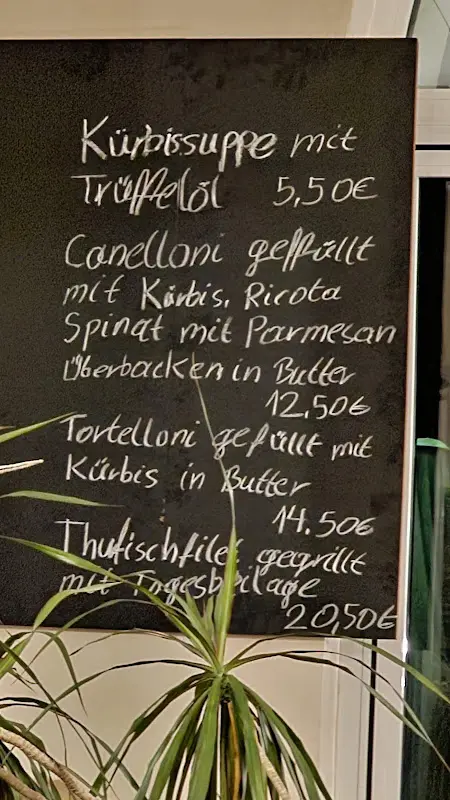 Kürbissuppe mit
Trüffelöl 5,50€
Canelloni geffüllt
mit Kürbis, Ricota
Spinat mit Parmesan
Überbacken in Butter
12,50€
Tortelloni gefüllt mit
Kürbis in Butter
14.50€
Thufischfilet gegrillt
mit Tagesbeilage
20,50€